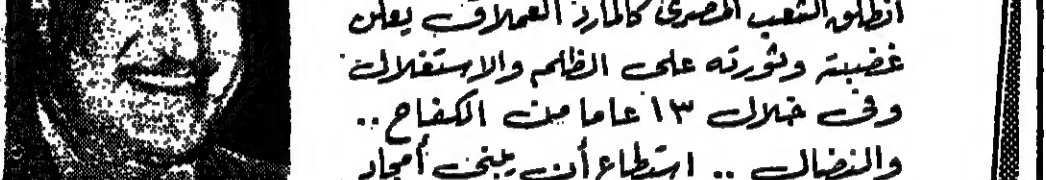 انطلق الشعب المصرى كالمارد العملاق يعلن
غضبته وثورته على الظلم والاستغلال
وفى خلال ١٣ عاما من الكفاح ..
والنضال .. استطاع أن يبنى أمجاد